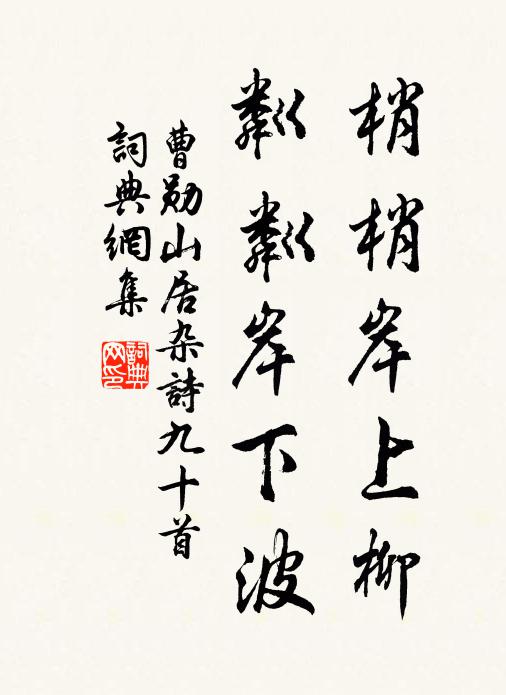 梢梢岸上柳
粼粼岸下波
曹勛山居杂詩九十首
詞典網集
詞典
网印